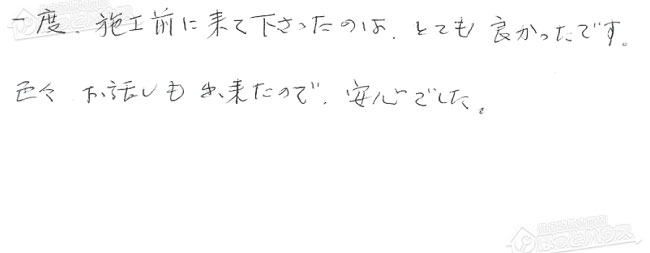 一度、施工前に来て下さったのは、とても良かったです。
色々お話しも出来たので、安心でした。